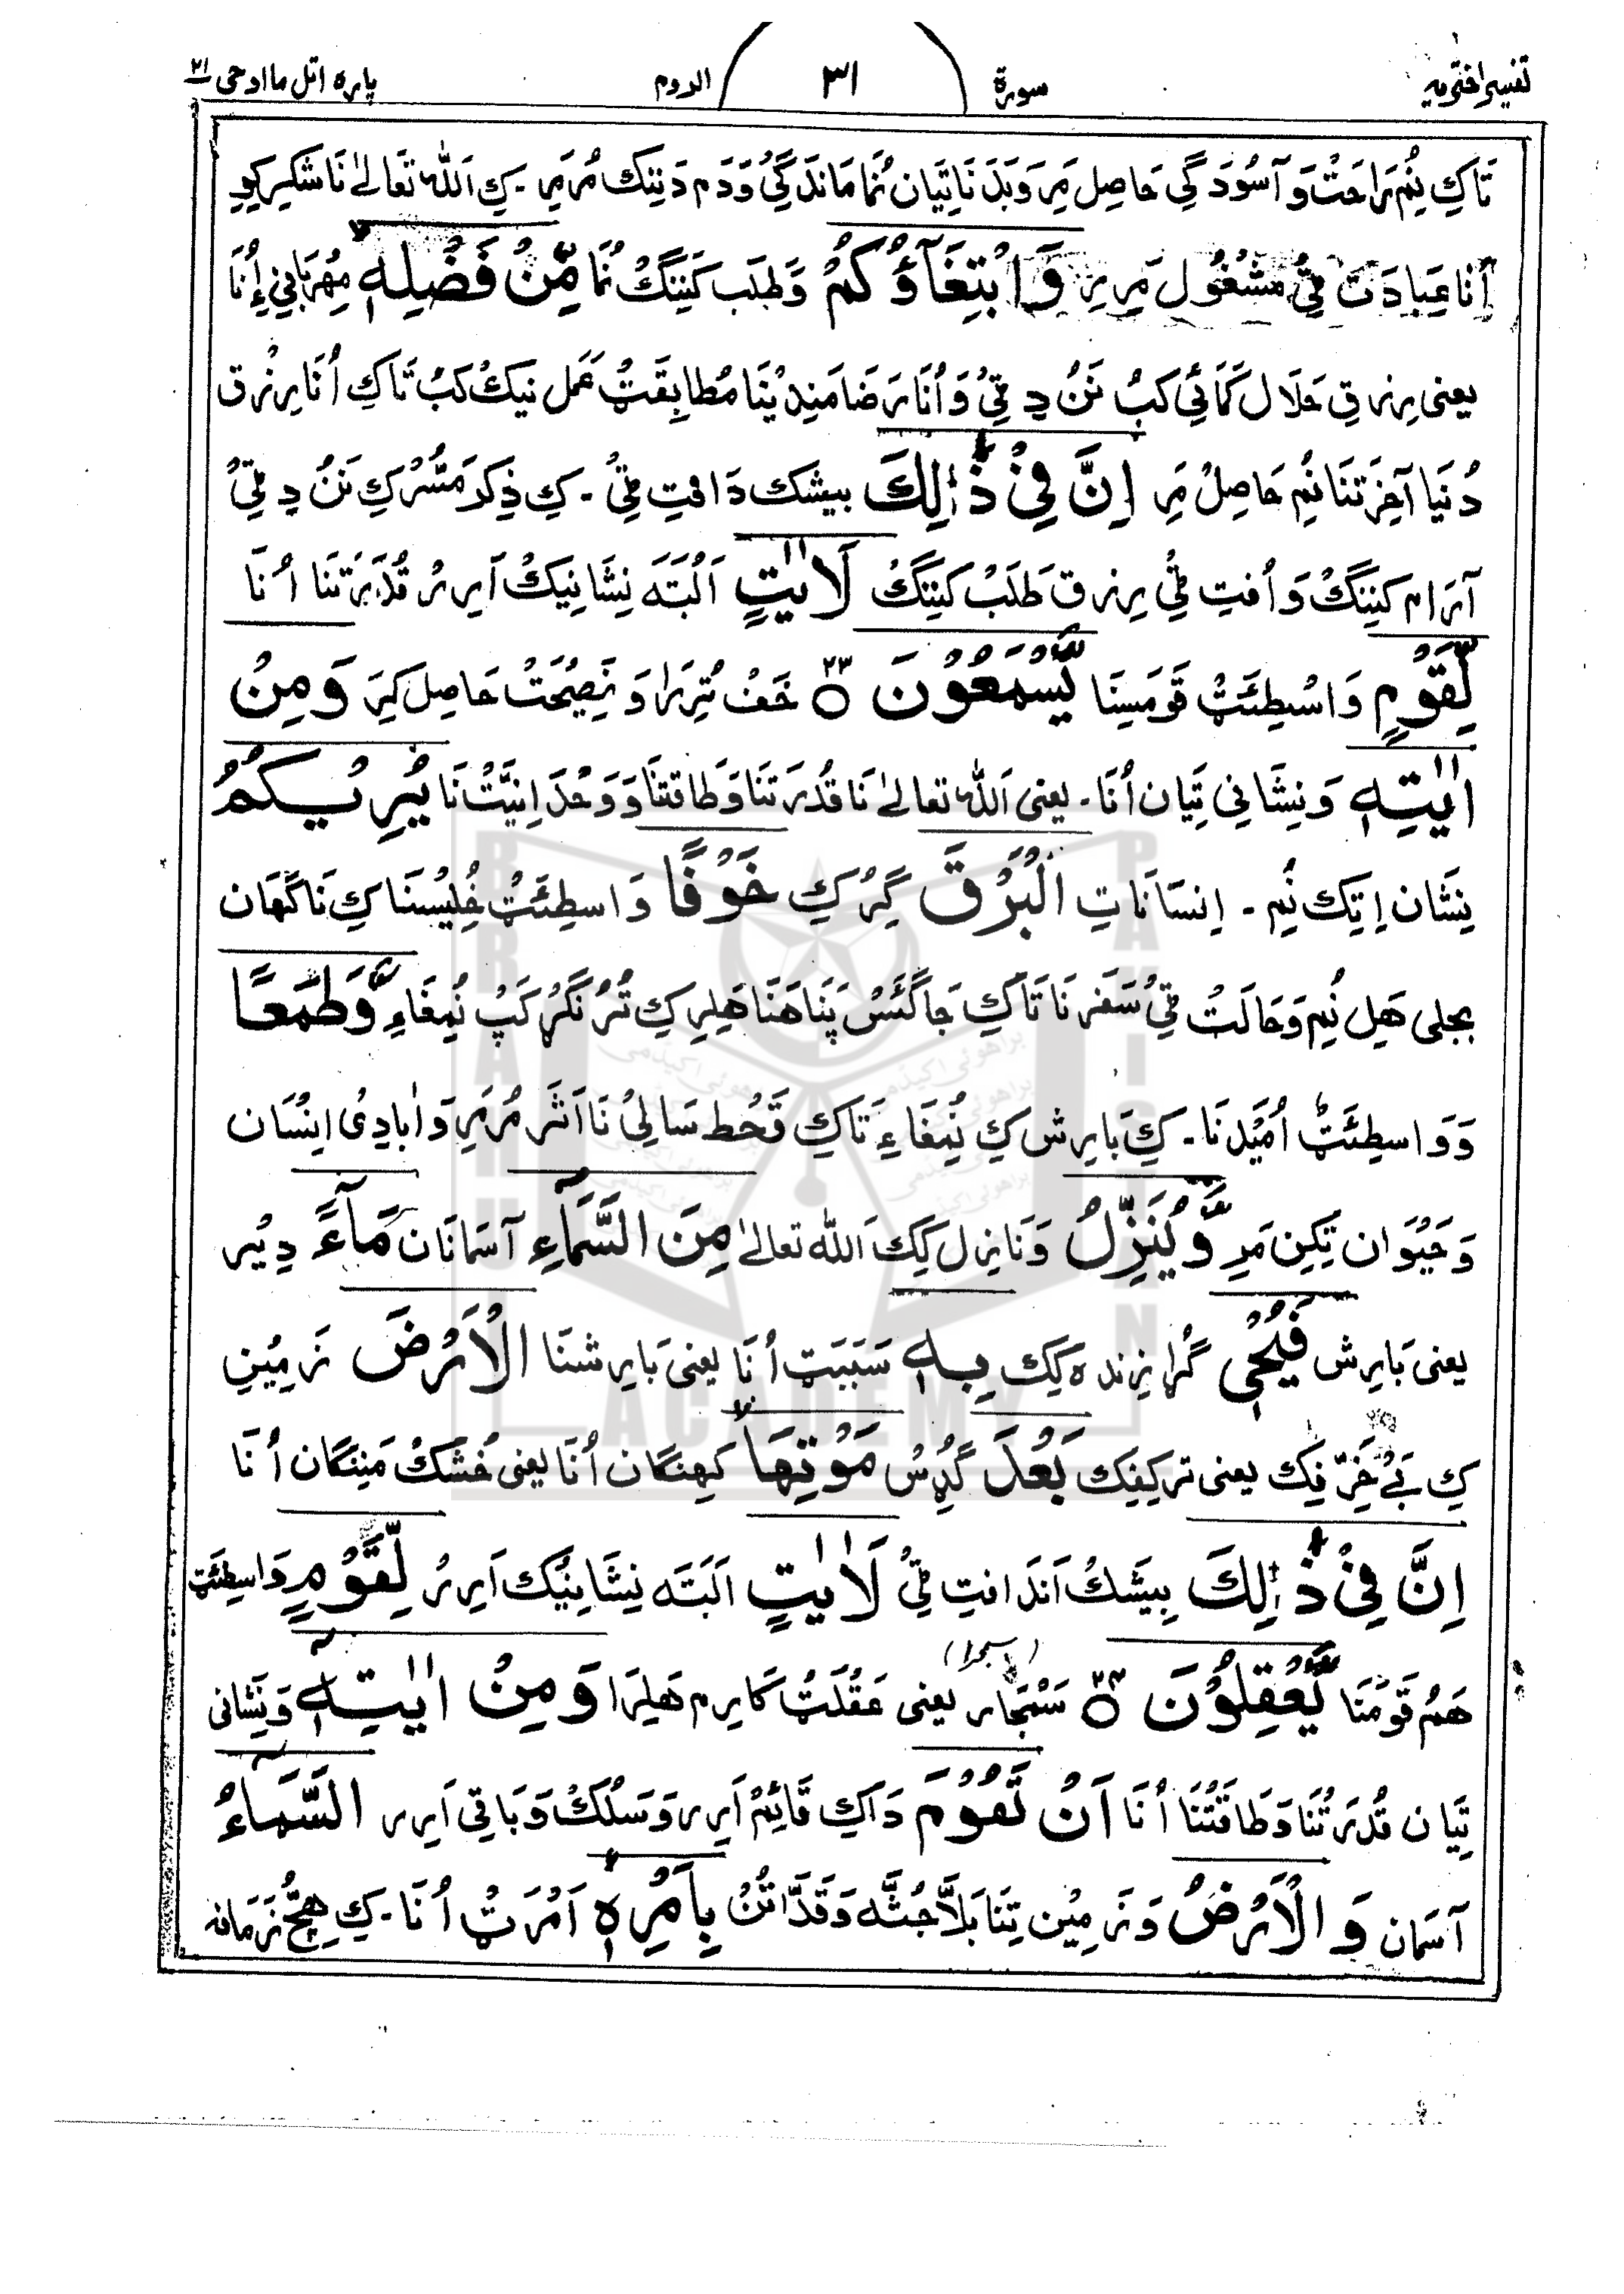 تفسیر اختریہ سورة ٣١ الروم پارہ اتل ما اوحی ٢١
تَاکِ نُم رَاحَتْ وَ آسُودَگِی حَاصِل مَرِ وَ بَدَنَا تِیَان نُمَا مَانْدَگِیُ وَ دَم دَنِنِک مُر مَرِ ۔ کِ اَللّٰہ تَعَالےٰ نَا شکر کِرِ
اُنَا عِبَادَت ٹِی مَشْغُول مَرِ وَابْتِغَآؤُکُمْ وَ طَلَب کَنِنگْ نُمَا مِّنْ فَضْلِهٖ مِہْرَبَانِیِ اُنَا
یعنی رِزقِ حَلَال کَمَائِی کَبْ نَنْ دِ ٹِیْ وَ اُنَا رَضَامَنْدِیْنَا مُطَابِقَتْ عَمَل نیکْ کَبْ تَاکِ اُنَا رِزْق
دُنْیَا آخِرَتَنَا نُم حَاصِلْ مَرِ اِنَّ فِیْ ذٰلِکَ بیشک دَا افتِ ٹِیْ ۔ کِ ذِکر مَسُّرْ کِ نَنْ دِ ٹِیْ
آرَام کَنِنگْ وَ اُفتِ ٹِیْ رِزق طَلَبْ کَنِنگْ لَاٰیٰتٍ اَلْبَتَہ نِشَانِیکْ اَیر قُدْرَتَنَا اُنَا
لِّقَوْمٍ وَاسْطِئَٹْ قَومَسِنَا یَّسْمَعُوْنَ ٢٣ خَفْ تِرِرَا وَ نَصِیْحَتْ حَاصِل کِرَ وَمِنْ
اٰیٰتِهٖ وَ نِشَانِی تِیَان اُنَا ۔ یعنی اَللّٰہ تعالےٰ نَا قُدْرَتَنَا وَ طَاقَتنَا وَ وَحْدَانِیَّتْ نَا یُرِیْکُمُ
نِشَان اِتِک نُم ۔ اِنسَانَاتِ الْبَرْقَ گِرُ کِ خَوْفًا وَاسطِئَٹْ خُلِیْسنَا کِ نَاگَہَان
بجلی ہَلِ نُم وَ حَالَتْ ٹِیْ سَفر نَا تَاکِ جَاگَئَسْ پَنَاہنَا ہَلِرِ کِ نُمغَاءِ وَّطَمَعًا
وَ وَاسطِئَٹْ اُمَیْدنَا ۔ کِ بَارِش کِ نُمغَاءِ تَاکِ قَحْط سَالِیْ نَا اَثَر مُر مَرِ وَ اٰبادِیْ اِنْسَان
وَ حَیْوَان تِکِن مَرِ وَّیُنَزِّلُ وَ نَازِل کِکَ اَللّٰہ تعالےٰ مِنَ السَّمَآءِ آسمَانَان مَآءً دِیْر
یعنی بَارِش فَیُحْیٖ گُڑا زِندہ کِک بِهِ سَبَبَٹ اُنَا یعنی بَارِشنَا الْاَرْضَ زَمِیْنِ
کِ یعنی بَعْدَ گُڈِسْ مَوْتِهَا کہنگان اُنَا یعنی خُشکْ مَننگان اُنَا
اِنَّ فِیْ ذٰلِکَ بِیشَکْ اَندَا افتِ ٹِیْ لَاٰیٰتٍ اَلبَتَہ نِشَانِیْک اَیرْ لِّقَوْمٍ وَاسطِئَٹ
ہَمُ قَوْمنَا یَّعْقِلُوْنَ ٢٤ سَمْجَار یعنی عَقْلَٹْ کَارِم ہَلِرَا وَمِنْ اٰیٰتِهٖ وَ نِشَانی
تِیَان قُدْرَتْنَا وَ طَاقَتْنَا اُنَا اَنْ تَقُوْمَ دَاکِ قَائِمْ اَیر وَ سَلُکْ وَ بَاقِی اَیر السَّمَآءُ
آسمَان وَالْاَرْضُ وَ زَمِیْن تِنَا بَلَّا جُثَّہ وَ قَدَّاتُنْ بِاَمْرِهٖ اَمْرَٹْ اُنَا ۔ کِ ہِیچْ زَمَانہ